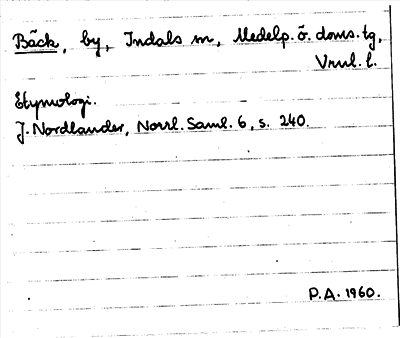 Bäck, by, Indals sn, Medelp. ö. doms. tg,
Vnrl. l.
Etymologi.
J. Nordlander, Norrl. Saml. 6, s. 240.
P.A. 1960.